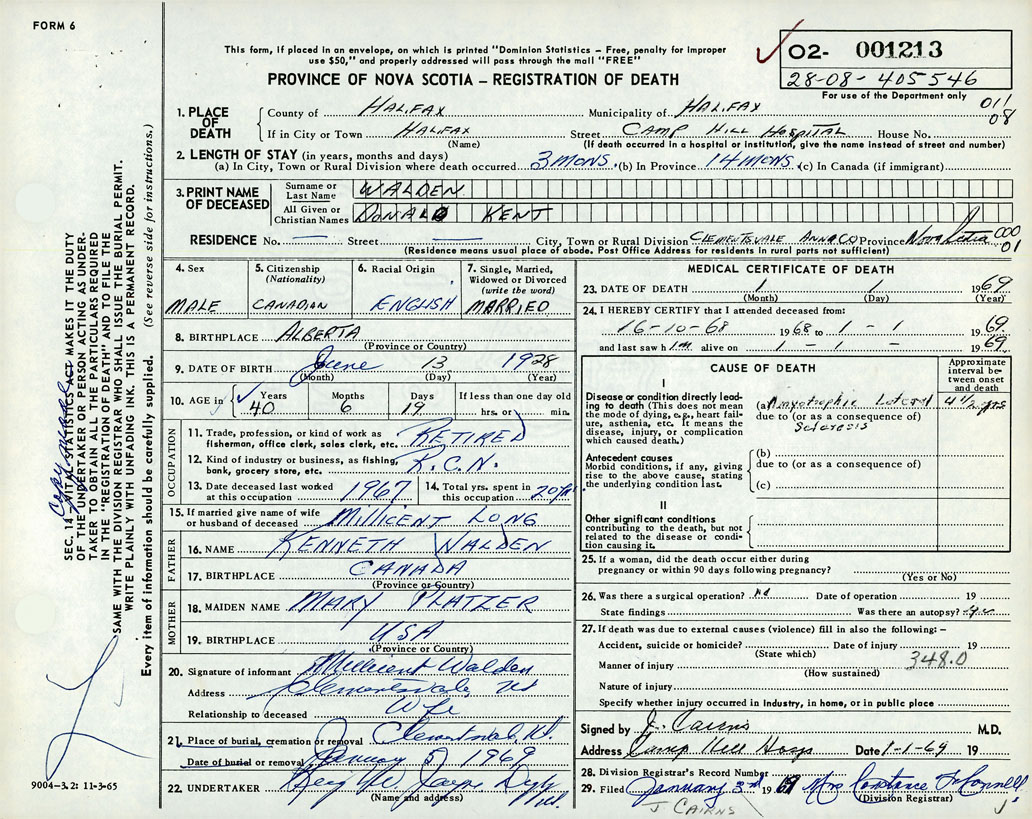 FORM 6
This form, if placed in an envelope, on which is printed "Dominion Statistics – Free, penalty for improper
use $50," and properly addressed will pass through the mail "FREE"
PROVINCE OF NOVA SCOTIA – REGISTRATION OF DEATH
02- 001213
28-08-405546
For use of the Department only
011
08
1. PLACE OF DEATH
County of HALIFAX Municipality of HALIFAX
If in City or Town HALIFAX Street CAMP HILL HOSPITAL House No.
(Name) (If death occurred in a hospital or institution, give the name instead of street and number)
2. LENGTH OF STAY (in years, months and days)
(a) In City, Town or Rural Division where death occurred 3 MONS. (b) In Province 14 MONS. (c) In Canada (if immigrant)
3. PRINT NAME OF DECEASED
Surname or Last Name WALDEN
All Given or Christian Names DONALD KENT
RESIDENCE No. — Street — City, Town or Rural Division CLEMENTSVALE ANNA CO Province Nova Scotia 000
(Residence means usual place of abode. Post Office Address for residents in rural parts not sufficient) 01
4. Sex MALE
5. Citizenship (Nationality) CANADIAN
6. Racial Origin ENGLISH
7. Single, Married, Widowed or Divorced (write the word) MARRIED
8. BIRTHPLACE ALBERTA
(Province or Country)
9. DATE OF BIRTH June 13 1928
(Month) (Day) (Year)
10. AGE in Years 40 Months 6 Days 19 If less than one day old hrs. or min.
OCCUPATION
11. Trade, profession, or kind of work as fisherman, office clerk, sales clerk, etc. RETIRED
12. Kind of industry or business, as fishing, bank, grocery store, etc. R.C.N.
13. Date deceased last worked at this occupation 1967
14. Total yrs. spent in this occupation 20
15. If married give name of wife or husband of deceased MILLICENT LONG
FATHER
16. NAME KENNETH WALDEN
17. BIRTHPLACE CANADA
(Province or Country)
MOTHER
18. MAIDEN NAME MARY PLATZER
19. BIRTHPLACE USA
(Province or Country)
20. Signature of informant Millicent Walden
Address Clementsvale NS
Relationship to deceased Wife
21. Place of burial, cremation or removal Clementsvale, N.S.
Date of burial or removal January 5 1969
22. UNDERTAKER
(Name and address)
MEDICAL CERTIFICATE OF DEATH
23. DATE OF DEATH 1 1 1969
(Month) (Day) (Year)
24. I HEREBY CERTIFY that I attended deceased from:
16-10-68 1968 to 1 - 1 - 1969
and last saw him alive on 1 - 1 - 1969
CAUSE OF DEATH
Approximate interval between onset and death
I
Disease or condition directly leading to death (This does not mean the mode of dying, e.g., heart failure, asthenia, etc. It means the disease, injury, or complication which caused death.)
(a) Amyotrophic Lateral 4 1/2 yrs
due to (or as a consequence of)
Sclerosis
Antecedent causes
Morbid conditions, if any, giving rise to the above cause, stating the underlying condition last.
(b)
due to (or as a consequence of)
(c)
II
Other significant conditions
contributing to the death, but not related to the disease or condition causing it.
25. If a woman, did the death occur either during
pregnancy or within 90 days following pregnancy?
(Yes or No)
26. Was there a surgical operation? no Date of operation 19
State findings Was there an autopsy? yes
27. If death was due to external causes (violence) fill in also the following: –
Accident, suicide or homicide? Date of injury 19
(State which) 348.0
Manner of injury
(How sustained)
Nature of injury
Specify whether injury occurred in industry, in home, or in public place
Signed by J. Cairns M.D.
Address Camp Hill Hosp Date 1-1-69 19
28. Division Registrar's Record Number
29. Filed January 3rd 1969 Mrs Constance
(Division Registrar)
J CAIRNS
SEC. 14 – VITAL STATISTICS ACT MAKES IT THE DUTY
OF THE UNDERTAKER OR PERSON ACTING AS UNDER-
TAKER TO OBTAIN ALL THE PARTICULARS REQUIRED
IN THE "REGISTRATION OF DEATH" AND TO FILE THE
SAME WITH THE DIVISION REGISTRAR WHO SHALL ISSUE THE BURIAL PERMIT.
WRITE PLAINLY WITH UNFADING INK. THIS IS A PERMANENT RECORD.
Every item of information should be carefully supplied. (See reverse side for instructions.)
9004-3.2: 11-3-65